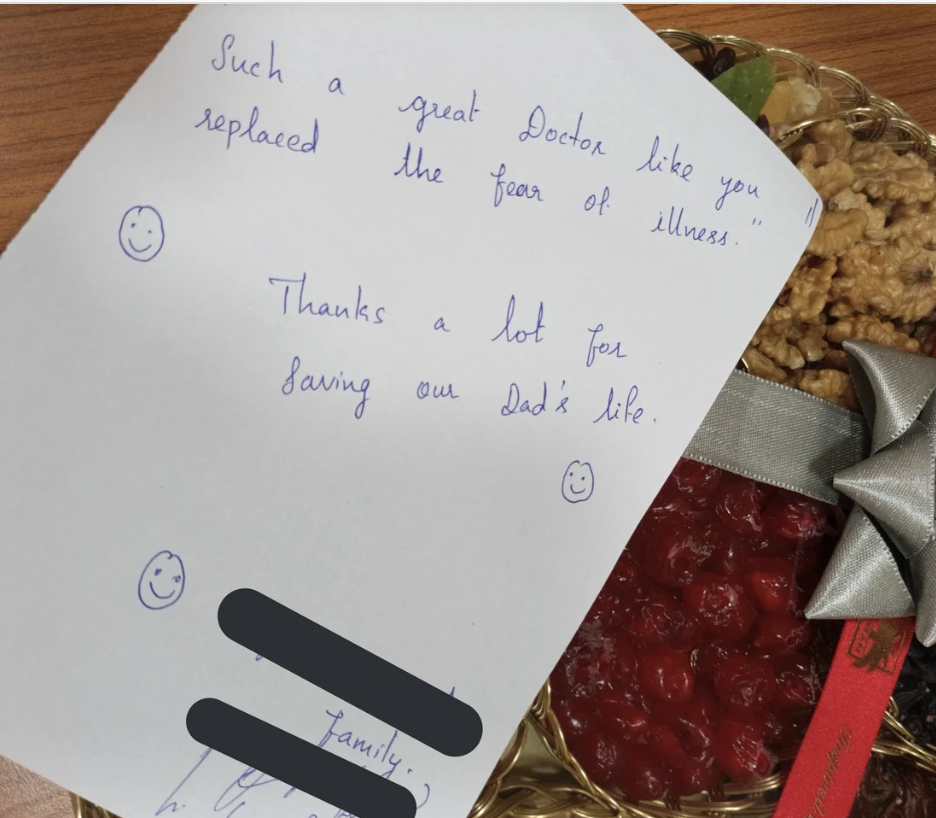 Such a great Doctor like you
replaced the fear of illness."
Thanks a lot for
Saving our Dad's life.
family.